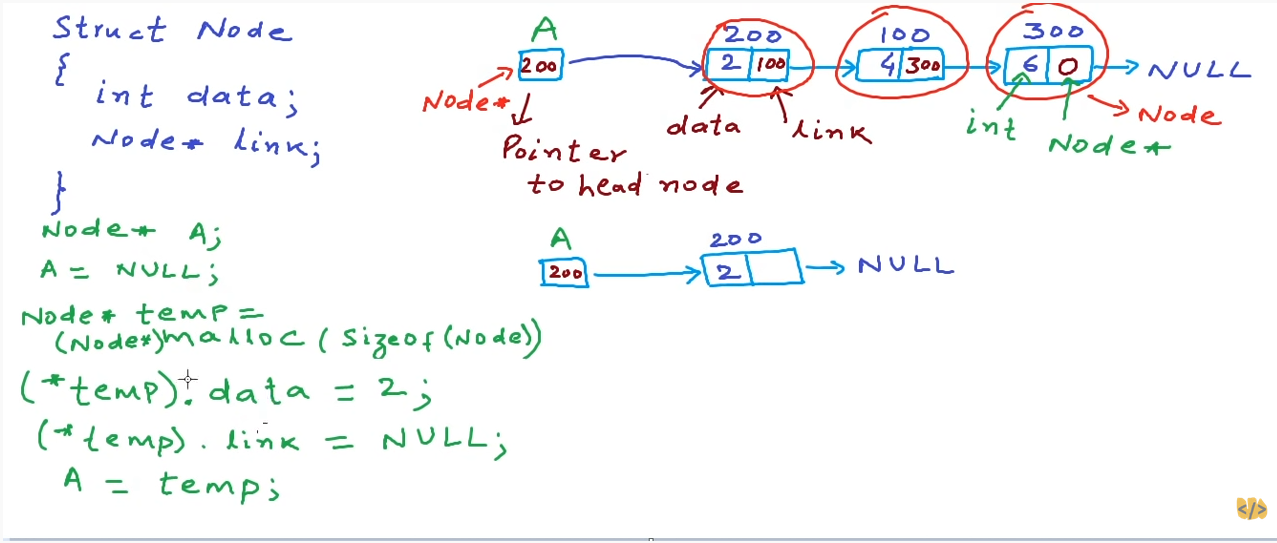 Struct Node
{
int data;
Node* link;
}
Node* A;
A = NULL;
Node* temp =
(Node*)malloc(sizeof(Node))
(*temp).data = 2;
(*temp).link = NULL;
A = temp;
A
200
Node*
Pointer
to head node
200
2 100
data link
100
4 300
300
6 0
NULL
int Node*
Node
A
200
200
2
NULL
</>